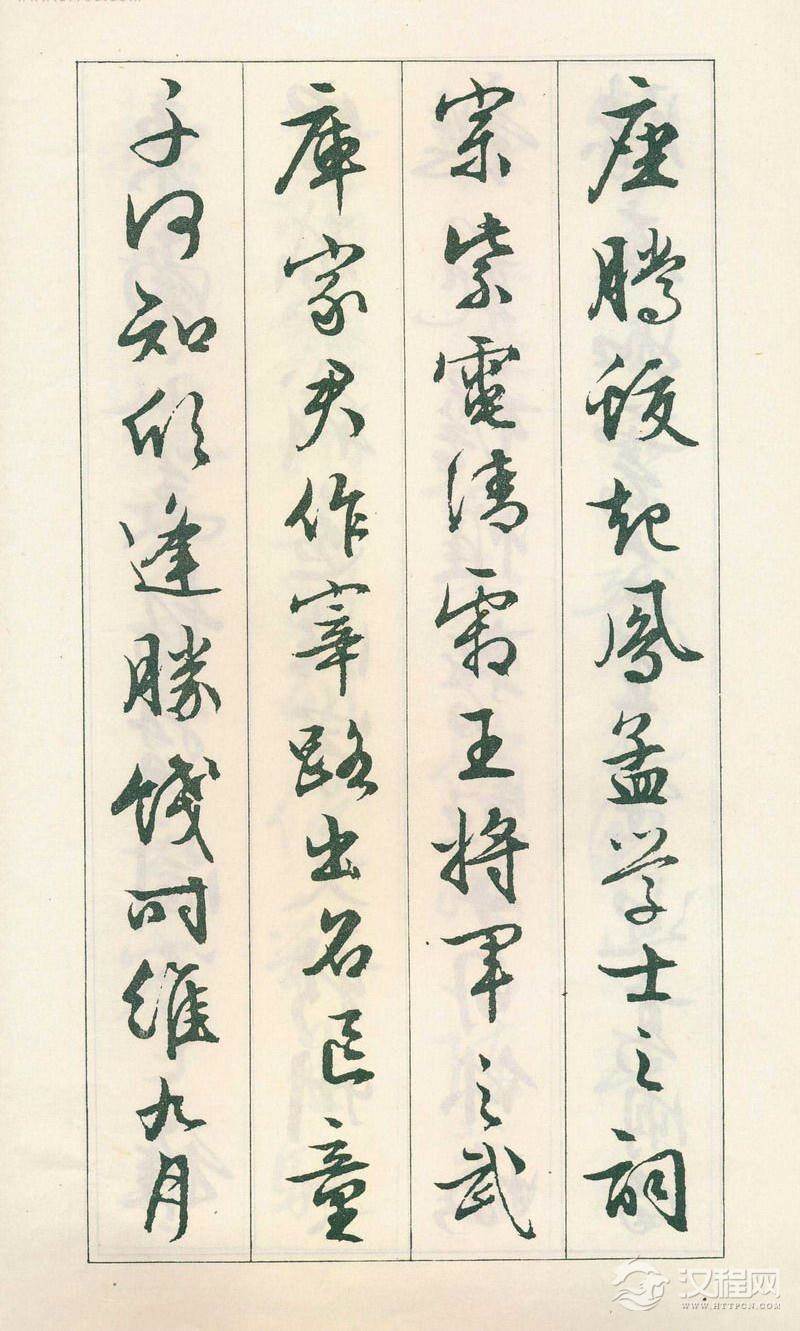 座腾蛟起鳳孟学士之詞
宗紫電清霜王将军之武
庫家君作宰路出名區童
子何知躬逢勝餞时維九月
汉程网
WWW.HTTPCN.COM